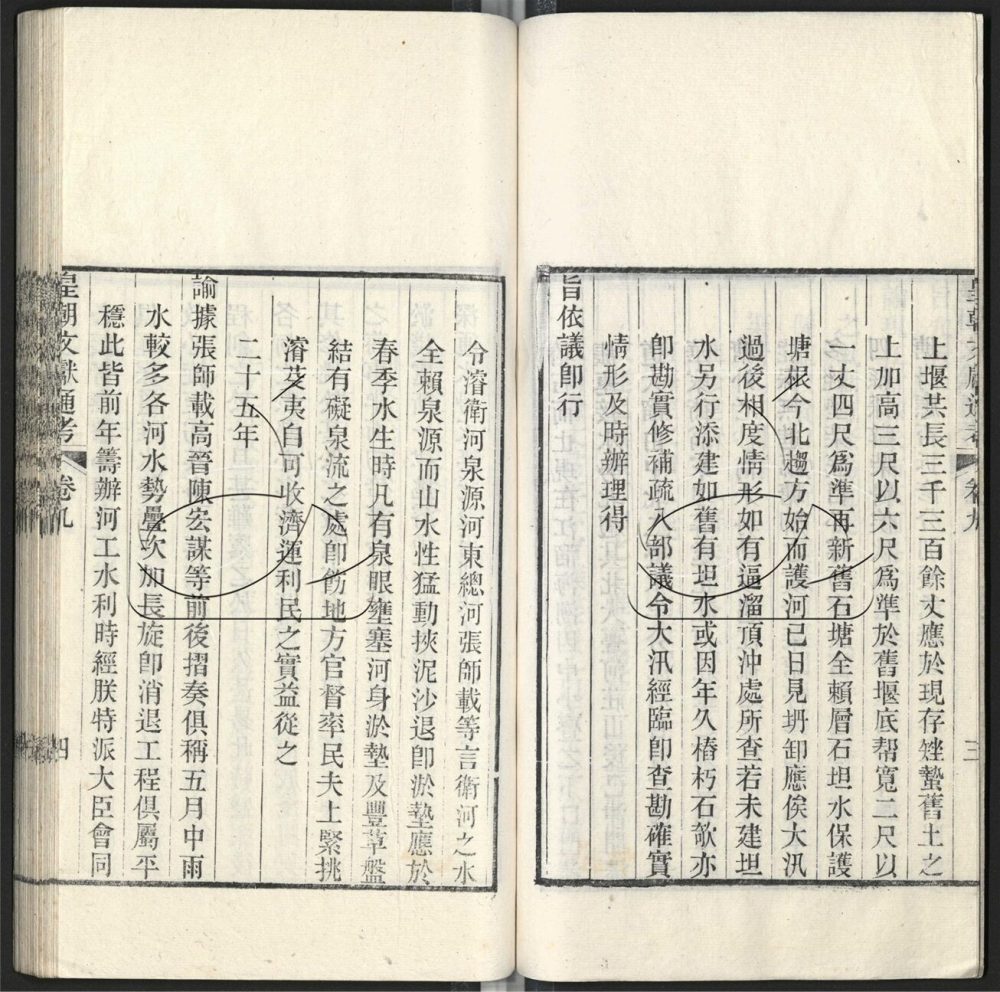 皇朝文獻通考 卷九 三
上堰共長三千三百餘丈應於現存矬蟄舊土之
上加高三尺以六尺爲準於舊堰底帮寬二尺以
一丈四尺爲準再新舊石塘全賴層石坦水保護
塘根今北趨方始而護河已日見坍卸應俟大汛
過後相度情形如有逼溜頂沖處所查若未建坦
水另行添建如舊有坦水或因年久樁朽石欹亦
卽勘實修補疏入部議令大汛經臨卽查勘確實
情形及時辦理得
旨依議卽行
令濬衛河泉源河東總河張師載等言衛河之水
全賴泉源而山水性猛動挾泥沙退卽淤墊應於
春季水生時凡有泉眼壅塞河身淤墊及豐草盤
結有礙泉流之處卽飭地方官督率民夫上緊挑
濬芟夷自可收濟運利民之實益從之
二十五年
諭據張師載高晉陳宏謀等前後摺奏俱稱五月中雨
水較多各河水勢疊次加長旋卽消退工程俱屬平
穩此皆前年籌辦河工水利時經朕特派大臣會同
皇朝文獻通考 卷九 四